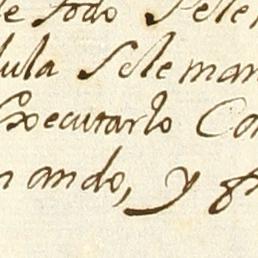 de todo Sele
dula Sele man
Executarlo Co
n ando, y